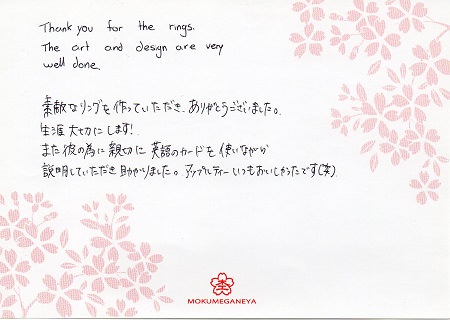 Thank you for the rings.
The art and design are very
well done.
素敵なリングを作っていただき、ありがとうございました。
生涯大切にします!
また彼の為に親切に英語のカードを使いながら
説明していただき助かりました。アップルティーいつもおいしかったです(笑)
MOKUMEGANEYA